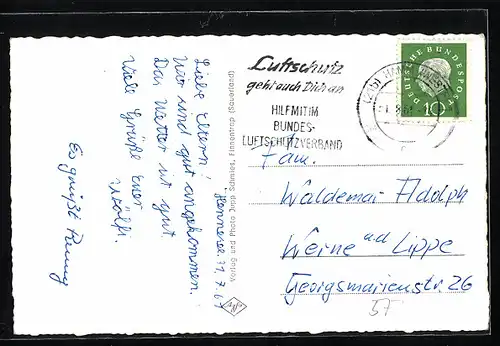 Hennesee, 31.7.61
Liebe Eltern!
Wir sind gut angekommen.
Das Wetter ist gut
Viele Grüße Euer
Wölfi.
Es grüßt
Verlag und Photo Jupp Schmies, Finnentrop (Sauerland)
Luftschutz
geht auch Dich an
HILF MIT IM
BUNDES-
LUFTSCHUTZVERBAND
DEUTSCHE BUNDESPOST
10
Fam.
Waldemar Adolph
Werne a.d. Lippe
Georgsmarienstr. 26
57